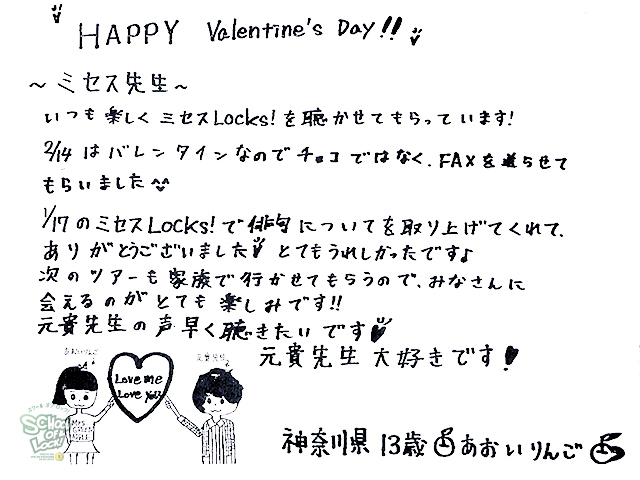 HAPPY Valentine's Day!!
～ミセス先生～
いつも楽しくミセスLocks!を聴かせてもらっています!
2/14はバレンタインなのでチョコではなく、FAXを送らせて
もらいました^^
1/17のミセスLocks!で俳句についてを取り上げてくれて、
ありがとうございました♥とてもうれしかったですよ
次のツアーも家族で行かせてもらうので、みなさんに
会えるのがとても楽しみです!!
元貴先生の声早く聴きたいです♥
元貴先生大好きです!
あおいりんご
元貴先生
Love me
Love You
SCHOOL
OF
LOCK!
神奈川県 13歳 あおいりんご